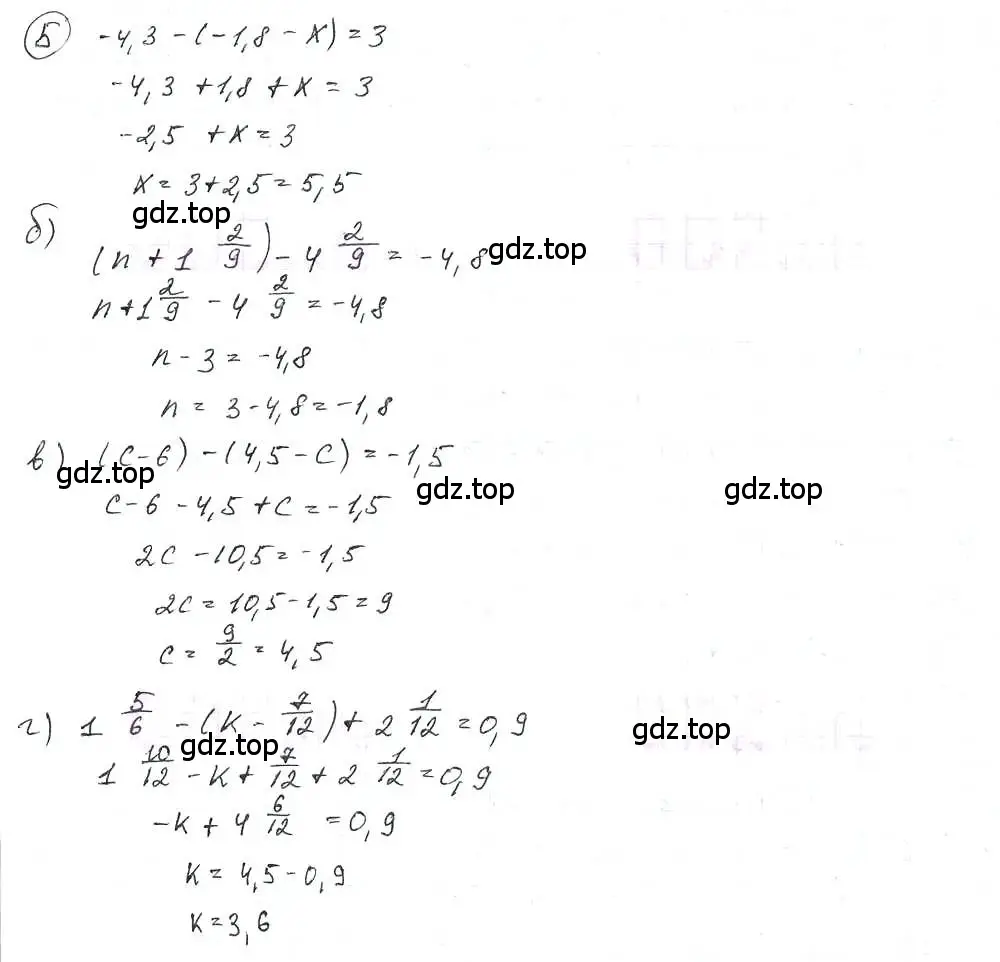 5 -4,3 - (-1,8 - x) = 3
-4,3 + 1,8 + x = 3
-2,5 + x = 3
x = 3 + 2,5 = 5,5
gdz.top
б) (n + 1 2/9) - 4 2/9 = -4,8
gdz.top
n + 1 2/9 - 4 2/9 = -4,8
n - 3 = -4,8
n = 3 - 4,8 = -1,8
в) (c - 6) - (4,5 - c) = -1,5
gdz.top
gdz.top
gdz.top
c - 6 - 4,5 + c = -1,5
2c - 10,5 = -1,5
2c = 10,5 - 1,5 = 9
c = 9/2 = 4,5
г) 1 5/6 - (k - 7/12) + 2 1/12 = 0,9
gdz.top
gdz.top
1 10/12 - k + 7/12 + 2 1/12 = 0,9
-k + 4 6/12 = 0,9
k = 4,5 - 0,9
k = 3,6